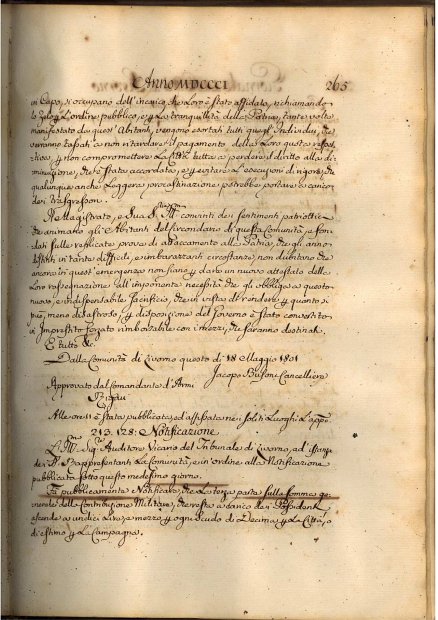 Anno MDCCCI 265
in Capo, si occupano dell'incarico che Loro è stato affidato, richiamando
lo Zelo p. l'ordine pubblico, e p. la tranquillità della Patria, tante volte
manifestato da quest'Abitanti, vengono esortati tutti quegl'Individui, che
verranno tassati a non ritardare il pagamento della Loro quota
p. non compromettere la Città tutta a perdere il diritto alla di-
minuzione, che è stata accordata, e p. evitare l'esecuzioni di rigore, che
qualunque anche Leggera procrastinazione potrebbe portare a carico
dei Trasgressori.
Il Magistrato, e Sua S. Ill.ma convinti dei sentimenti patriottici
che animano gl'Abitanti del Circondario di questa Comunità, e fon-
dati sulle replicate prove di attaccamento alla Patria, che gli anno
distinti in tante difficili, e imbarazzanti circostanze non dubitano che
ancora in quest'emergenza non siano p. dare un nuovo attestato della
Loro rassegnazione all'imponente necessità che gli obbliga a questo
nuovo, e indispensabile sacrifizio, che in vista di render p. quanto si
può, meno disastroso, p. disposizione del Governo è stato convertito
in Imprestito forzato rimborsabile con i mezzi, che saranno destinati.
E tutto &c.
Dalla Comunità di Livorno questo dì 18 Maggio 1801
Jacopo Bufoni Cancelliere
Approvato dal Comandante d'Armi
Rigau
Alle ore 11 è stata pubblicata, ed affissata nei soliti Luoghi
213. 128: Notificazione
L'Ill.mo Sig.re Auditore Vicario del Tribunale di Livorno, ad istanza
dei Rappresentanti La Comunità, e in ordine alla Notificazione
pubblicata sotto questo medesimo giorno.
Fà pubblicamente Notificare, che La terza parte sulla somma ge-
nerale della Contribuzione Militare, che resta a carico dei Possidenti
ascende a undici Lire, e mezzo p. ogni Scudo di Decima p. La Città,
di estimo p. La Campagna.